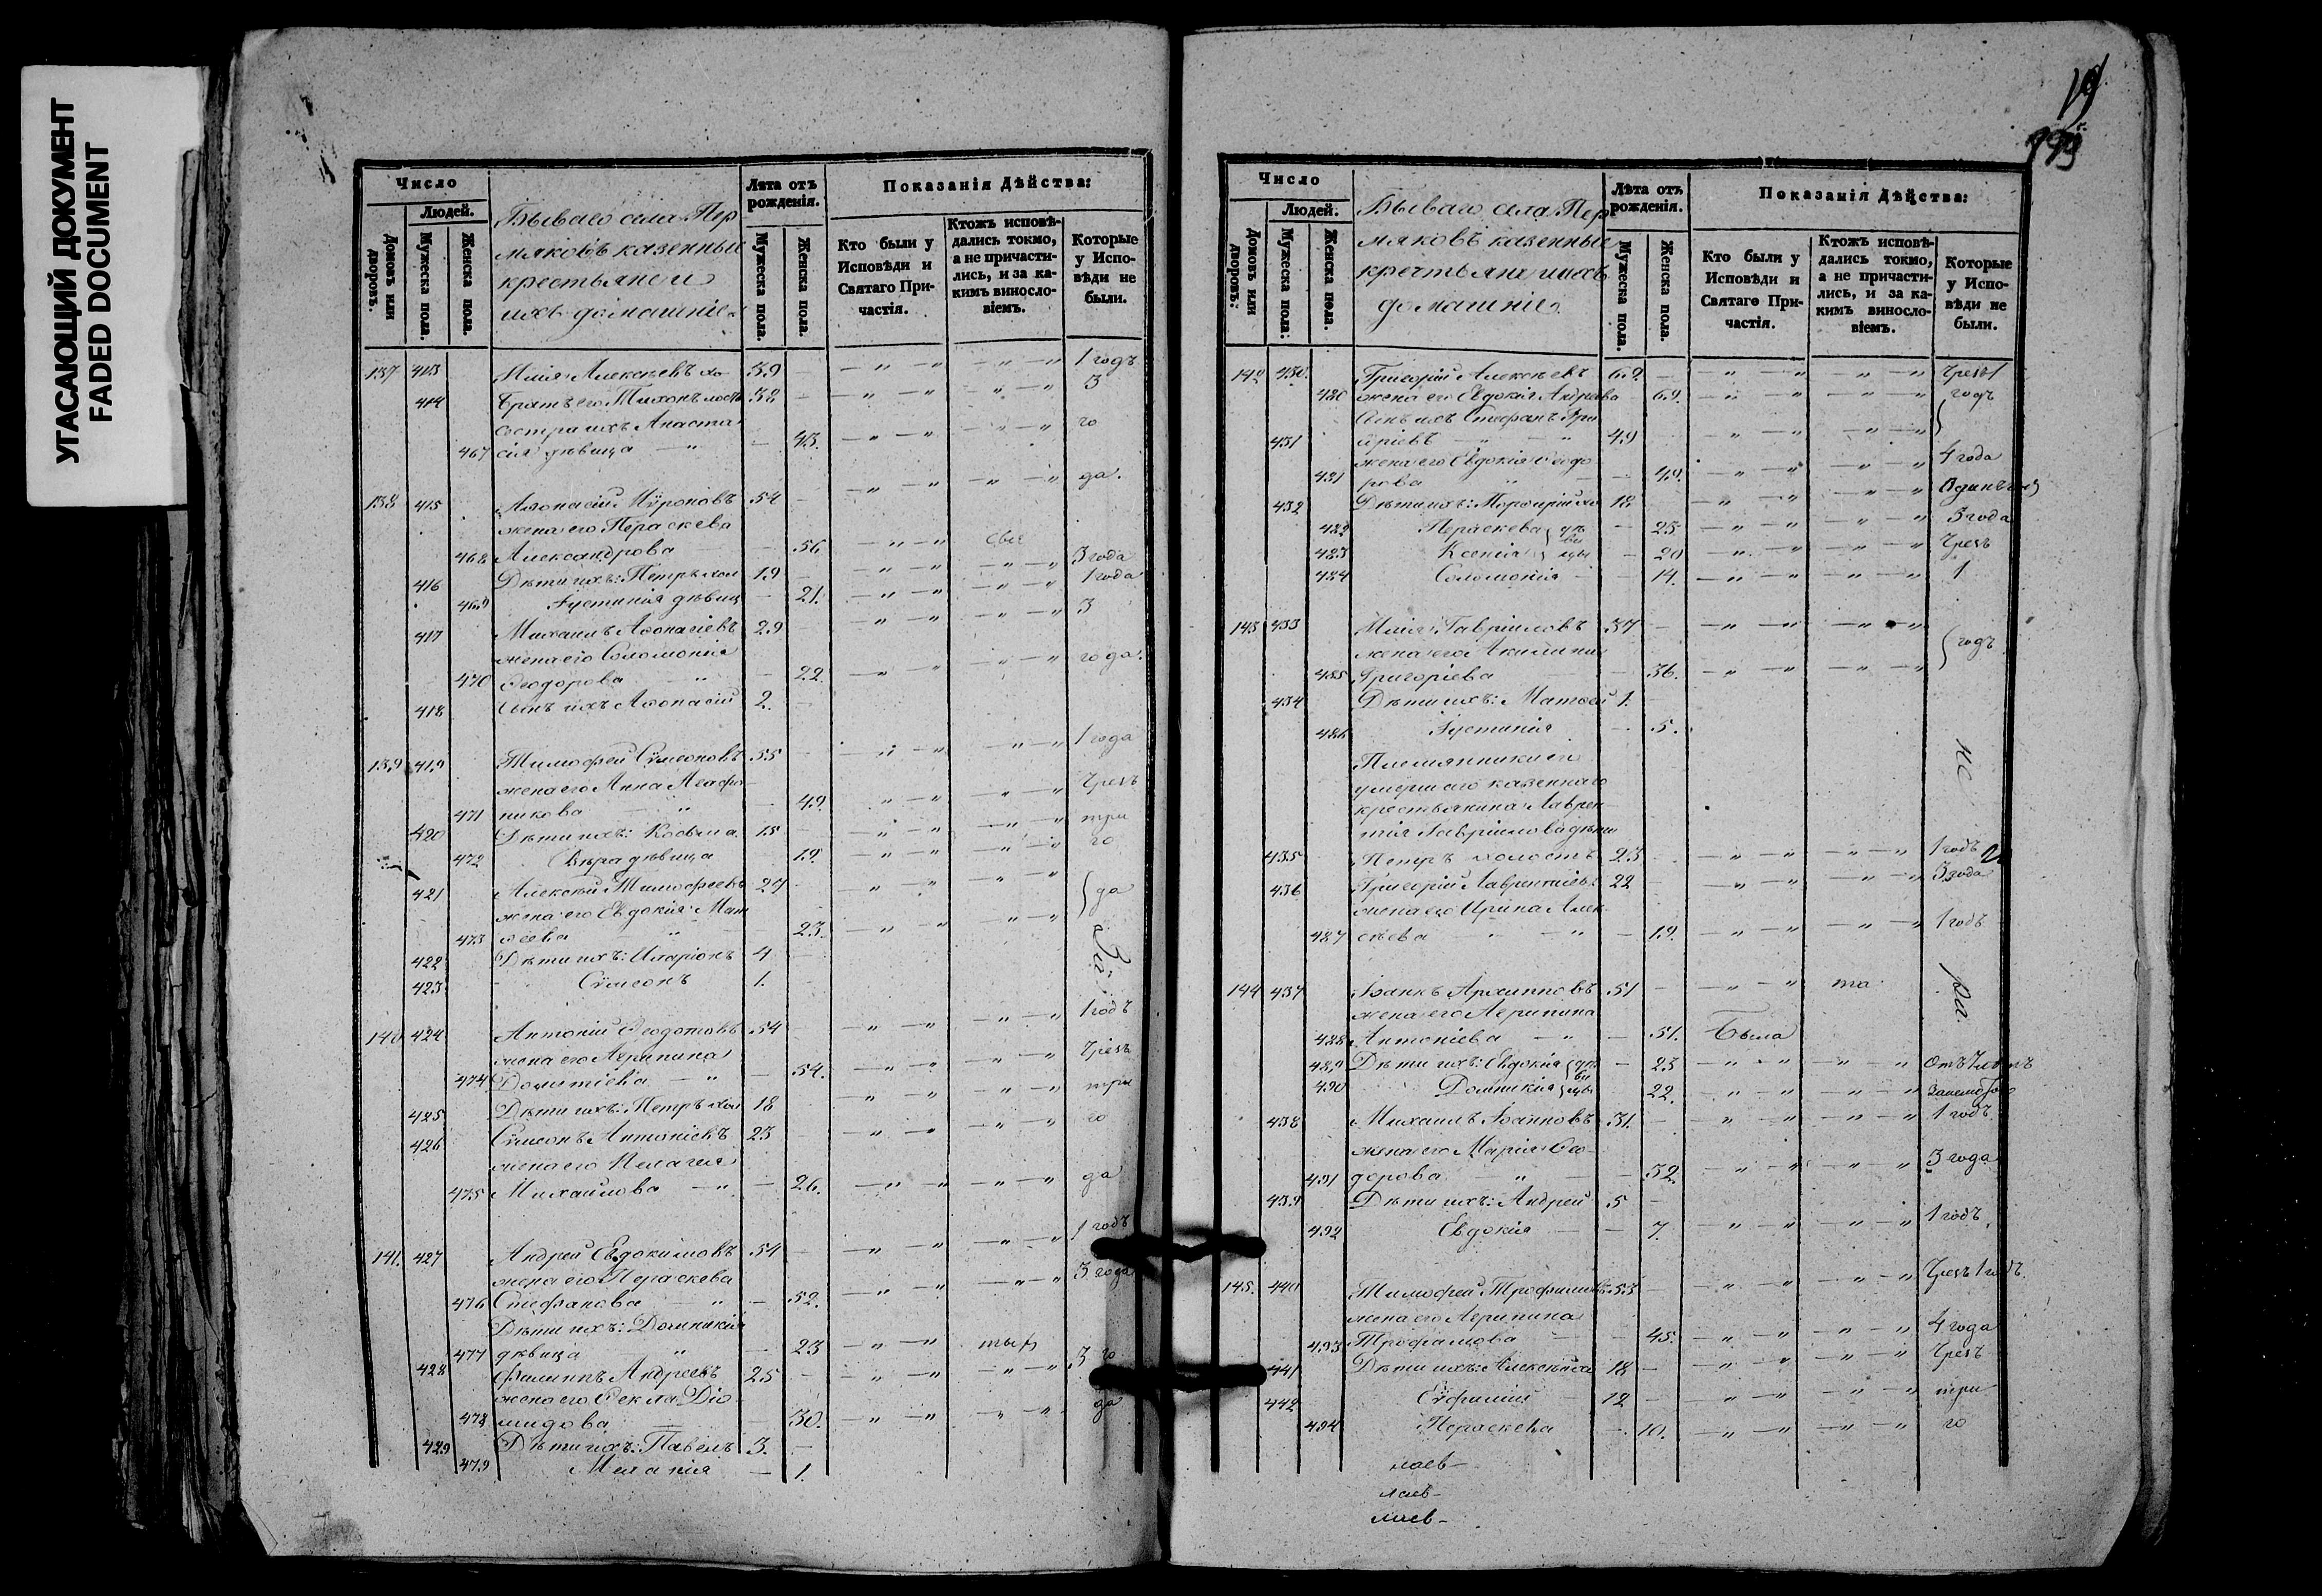 УГАСАЮЩИЙ ДОКУМЕНТ
FADED DOCUMENT
Число
Людей.
Домовъ или дворовъ.
Мужеска пола.
Женска пола.
Бываго села Пер
мяковъ казенные
крестьяне и
ихъ домашніе
Лѣта отъ рожденія.
Мужеска пола.
Женска пола.
Показанія Дѣйства:
Кто были у Исповѣди и Святаго При-частія.
Ктожъ исповѣ-дались токмо, а не причасти-лись, и за ка-кимъ винosло-віемъ.
Которые у Испо-вѣди не были.
137 413 Илія Алексѣевъ хо 39 1 годъ
414 Братъ его Тихонъ холост 38 3
сестра ихъ Анаста го
467 сія дѣвица 43
138 415 Аѳонасій Мѵроновъ 54 да.
жена его Параскева
468 Александрова 56
416 Дѣти ихъ: Петръ хол 19 3 года
469 Іустинія дѣвиц 21. 1 года
417 Михаилъ Аѳонасіевъ 29 3
жена его Соломонія
470 Ѳеодорова 22 года.
418 Сынъ ихъ Аѳонасій 2.
139 419 Тимоѳей Сѵмеоновъ 55 1 года
жена его Анна Агаѳо
471 никова 49 Чрезъ
420 Дѣти ихъ: Косьма 15 три
472 Вѣра дѣвица 19 го
421 Алексѣй Тимоѳеевъ 27 да
жена его Евдокія Мат
473 ѳеева 23.
422 Дѣти ихъ: Иларіонъ 4
423 Сѵмеонъ 1.
140 424 Антоній Ѳеодотовъ 54 1 годъ
жена его Агрипина
474 Домитіева 54. Чрезъ
425 Дѣти ихъ: Петръ хол 18 три
426 Сѵмеонъ Антоніевъ 23 го
жена его Пелагея
475 Михайлова 26. да
141. 427 Андрей Евдокимовъ 54 1 годъ
жена его Параскева
476 Стефанова 52. 3 года
Дѣти ихъ: Домникія
477 дѣвица 23
428 Филиппъ Андреевъ 25 3 го
жена его Ѳекла Діо
478 мидова 30. да
429 Дѣти ихъ: Павелъ 3.
479 Меланія 1.
19
Число
Людей.
Домовъ или дворовъ:
Мужеска пола:
Женска пола.
Бываго села Пер
мяковъ казенные
крестьяне и ихъ
домашніе
Лѣта отъ рожденія.
Мужеска пола.
Женска пола.
Показанія Дѣйства:
Кто были у Исповѣди и Святаго При-частія.
Ктожъ исповѣ-дались токмо, а не причасти-лись, и за ка-кимъ винosло-віемъ.
Которые у Испо-вѣди не были.
142 430. Григорій Алексѣевъ 69. Чрезъ 1
480 жена его Евдокія Андреева 69. годъ
Сынъ ихъ Стефанъ Гри
431 горіевъ 49
жена его Евдокія Ѳеодо
481 рова 49. 4 года
432 Дѣти ихъ: Порфирій хо 18
482 Параскева дѣ 25 3 года
483 Ксенія вицы 20 Чрезъ
484 Соломонія 14. 1
143 433 Илія Гавріиловъ 37
жена его Акилина годъ
485 Григоріева 36.
434 Дѣти ихъ: Матѳей 1.
486 Іустинія 5.
Племянники его
умершаго казеннаго
крестьянина Лаврен
тія Гавріилова дѣти
435 Петръ холостъ 23 1 годъ
436 Григорій Лаврентіевъ 22 3 года
жена его Ирина Алек
487 сѣева 19. 1 годъ
144 437 Іоанъ Архипповъ 51 та
жена его Агрипина
488 Антоніева 51. Была
489 Дѣти ихъ: Евдокія дѣ 23
490 Домникія вицы 22.
438 Михаилъ Іоанновъ 31. 1 годъ
жена его Марія Ѳео
491 дорова 32. 3 года
439 Дѣти ихъ: Андрей 5
492 Евдокія 7. 1 годъ
145. 440 Тимоѳей Трофимовъ 53 Чрезъ 1 годъ
жена его Агрипина
493 Трофимова 45. 4 года
441 Дѣти ихъ: Алексѣй хо 18 Чрезъ
442 Евфимій 12 три
494 Параскева 10. го
лаев-
лаев-
лиев-